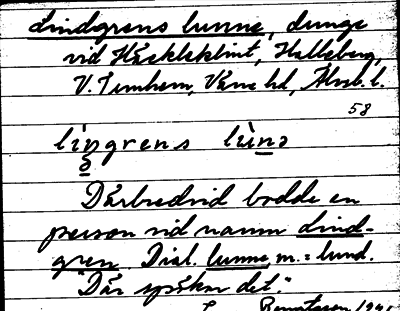 Lindgrens lunne, dunge
vid Häckleklint, Halleberg,
V. Tunhem, Väne hd, Älvsb. l.
58
lìŋgrens lùnə
Därbredvid bodde en
person vid namn Lind-
gren. Dial. lunne m. = lund.
"Där spökar det."